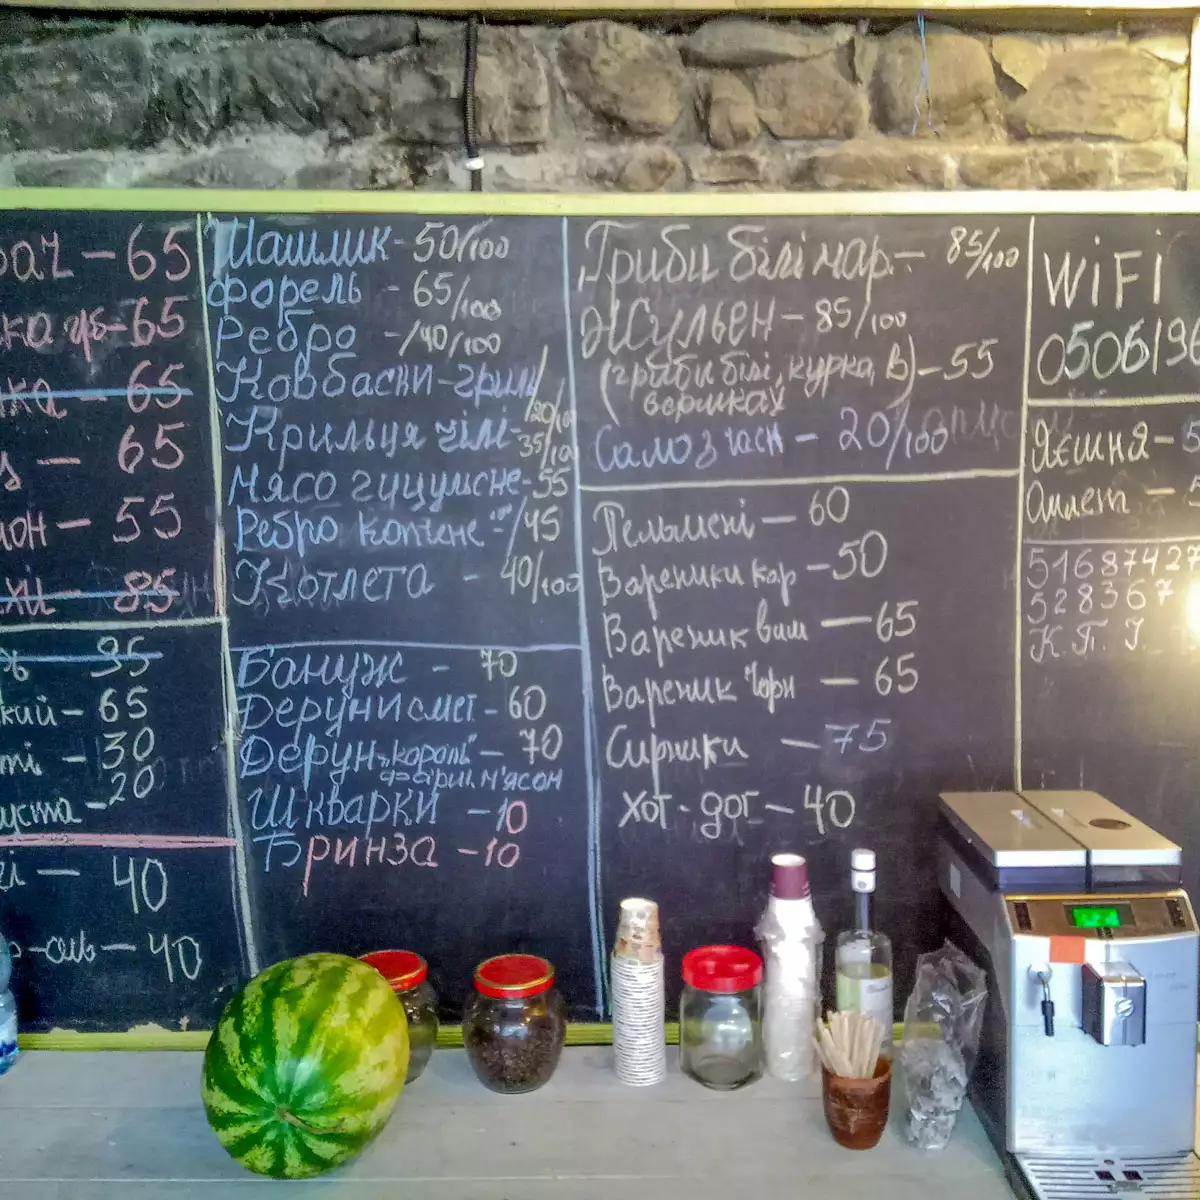 65
65
65
65
55
85
95
кий - 65
ті - 30
уста - 20
40
40
Шашлик - 50/100
форель - 65/100
Ребро - /40/100
Ковбаски - гриль/
/20/100
Крильця чілі -
35/100
Мясо гуцульське - 55
Ребро копчене - /45
Котлета - 40/100
Бануж - 70
Деруни смет - 60
Дерун „король" - 70
фарш. м'ясом
Шкварки - 10
Бринза - 10
Гриби білі мар. - 85/100
Жульен - 85/100
(гриби білі, курка, в) - 55
вершках
Сало з часн - 20/100
Пельмені - 60
Вареники кар - 50
Вареник виш - 65
Вареник Чорн - 65
Сирники - 75
Хот-дог - 40
WiFi
050619
Яєшня -
Омлет -
51687427
528367
К. П. І.